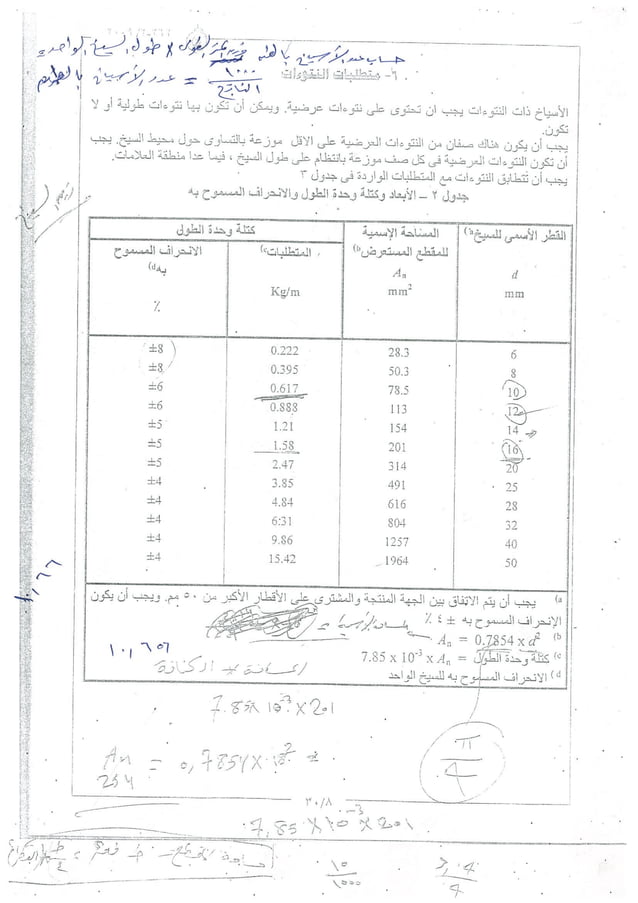 حساب عدد الأسياخ بالطن
طول السيخ الواحد =
١٠٠٠ / الناتج = عدد الأسياخ بالطن
٦- متطلبات النتوءات
الأسياخ ذات النتوءات يجب ان تحتوى على نتوءات عرضية. ويمكن أن تكون بها نتوءات طولية أو لا
تكون.
يجب أن يكون هناك صفان من النتوءات العرضية على الاقل موزعة بالتساوى حول محيط السيخ. يجب
أن تكون النتوءات العرضية فى كل صف موزعة بانتظام على طول السيخ ، فيما عدا منطقة العلامات.
يجب أن تتطابق النتوءات مع المتطلبات الواردة في جدول ٣
جدول ٢ – الأبعاد وكتلة وحدة الطول والانحراف المسموح به
القطر الأسمى للسيخ(a المساحة الإسمية كتلة وحدة الطول
للمقطع المستعرض(b المتطلبات(c الانحراف المسموح
به(d
d An
mm mm² Kg/m ٪
6 28.3 0.222 ±8
8 50.3 0.395 ±8
10 78.5 0.617 ±6
12 113 0.888 ±6
14 154 1.21 ±5
16 201 1.58 ±5
20 314 2.47 ±5
25 491 3.85 ±4
28 616 4.84 ±4
32 804 6:31 ±4
40 1257 9.86 ±4
50 1964 15.42 ±4
a) يجب أن يتم الاتفاق بين الجهة المنتجة والمشترى على الأقطار الأكبر من ٥٠ مم. ويجب أن يكون
الإنحراف المسموح به ± ٤ ٪
b) An = 0.7854 x d²
c) كتلة وحدة الطول = 7.85 x 10⁻³ x An
d) الانحراف المسموح به للسيخ الواحد
١٠,٦٥٦
7.85 x 10⁻³ x 201
π/4
An = 0,7854 x
٣٠/٨
7,85 x 10⁻³ x 201
10/1000
3,04/4